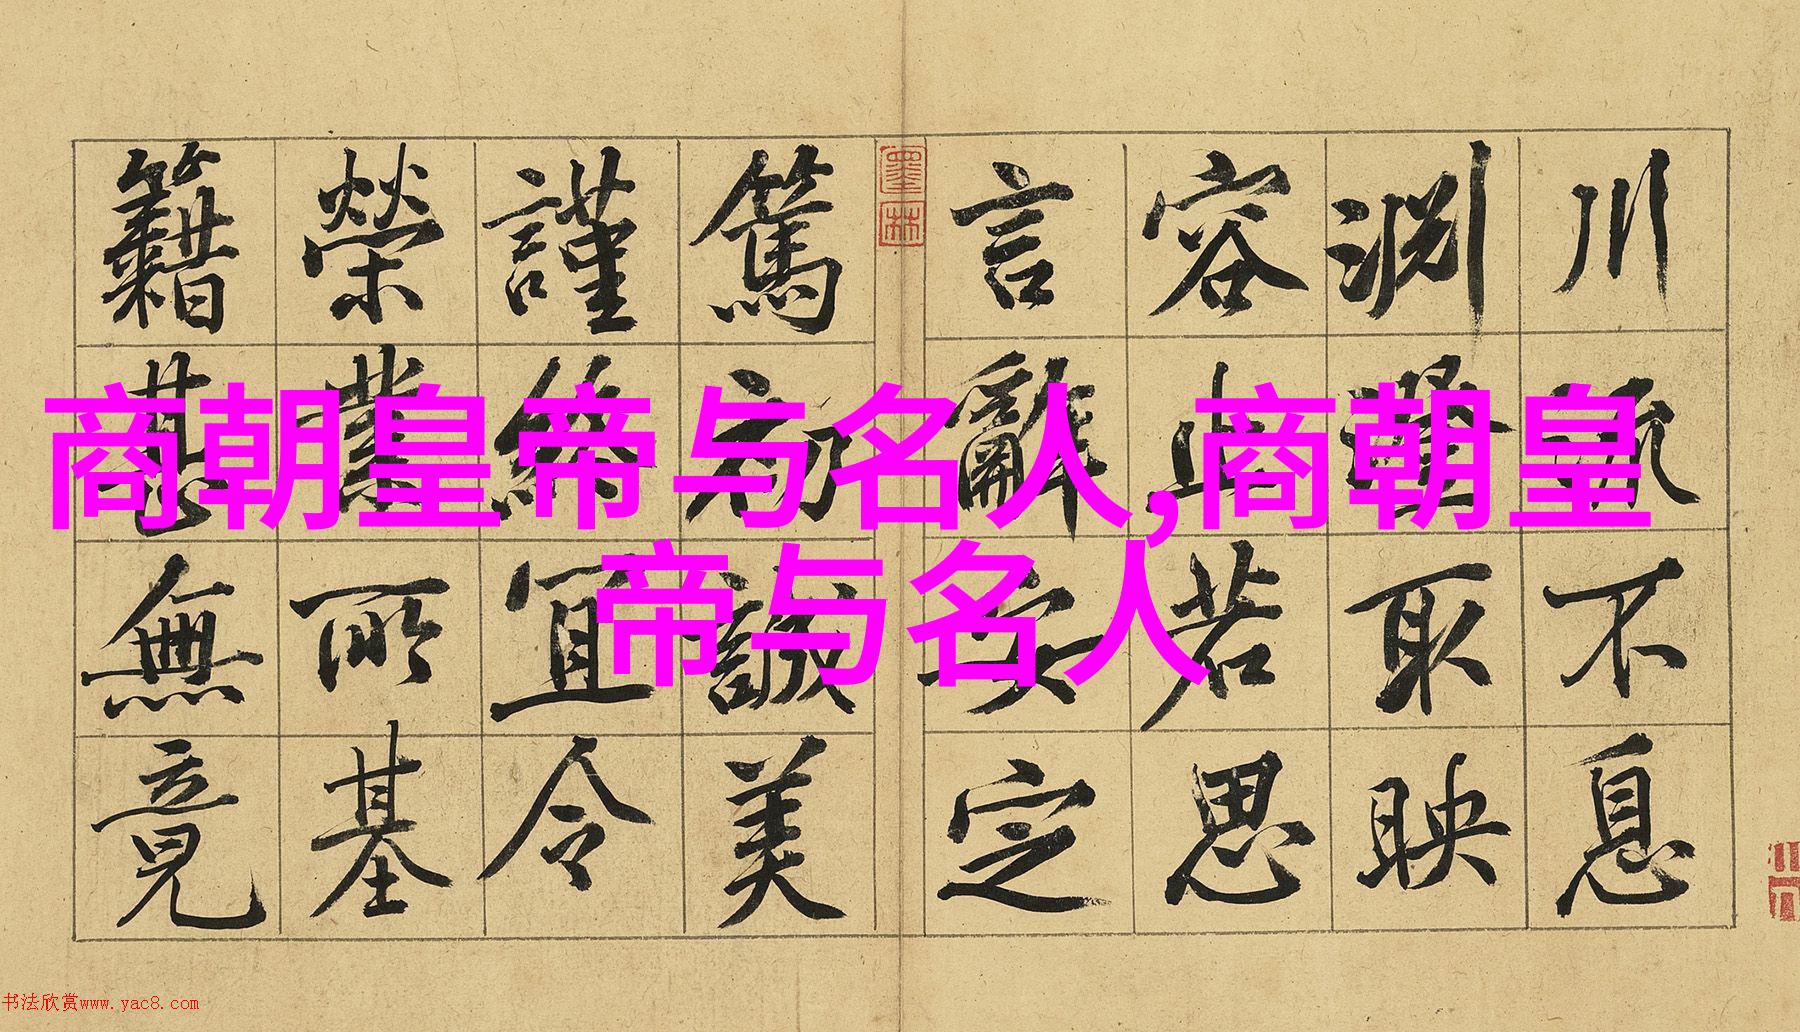 商朝皇帝与名人,商朝皇
帝与名人
川流不息
淵澄取映
容止若思
言辭安定
墨林
篤初誠美
謹終宜令
榮業所基
籍甚無竟
书法欣赏www.yac8.com